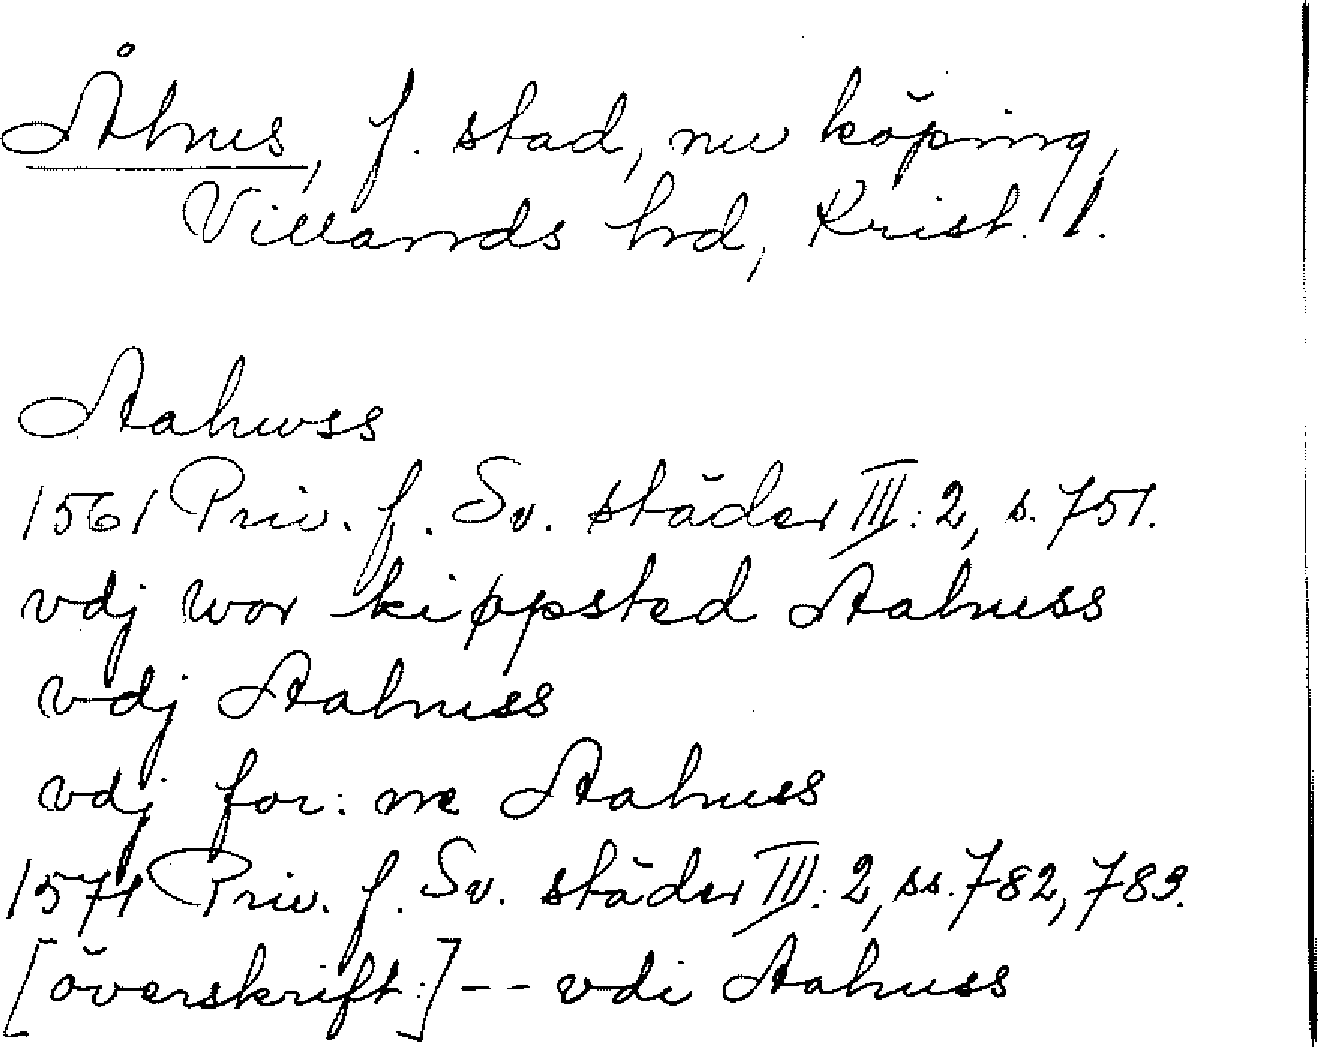 Åhus, f. stad, nu köping,
Villands hd, Krist. l.
Aahuss
1561 Priv. f. Sv. städer III:2, s. 751.
vdj wor kiøppsted Aahuss
vdj Aahuss
vdj for:ne Aahuss
1574 Priv. f. Sv. städer III:2, ss. 782, 783.
[överskrift:] -- vdi Aahuss